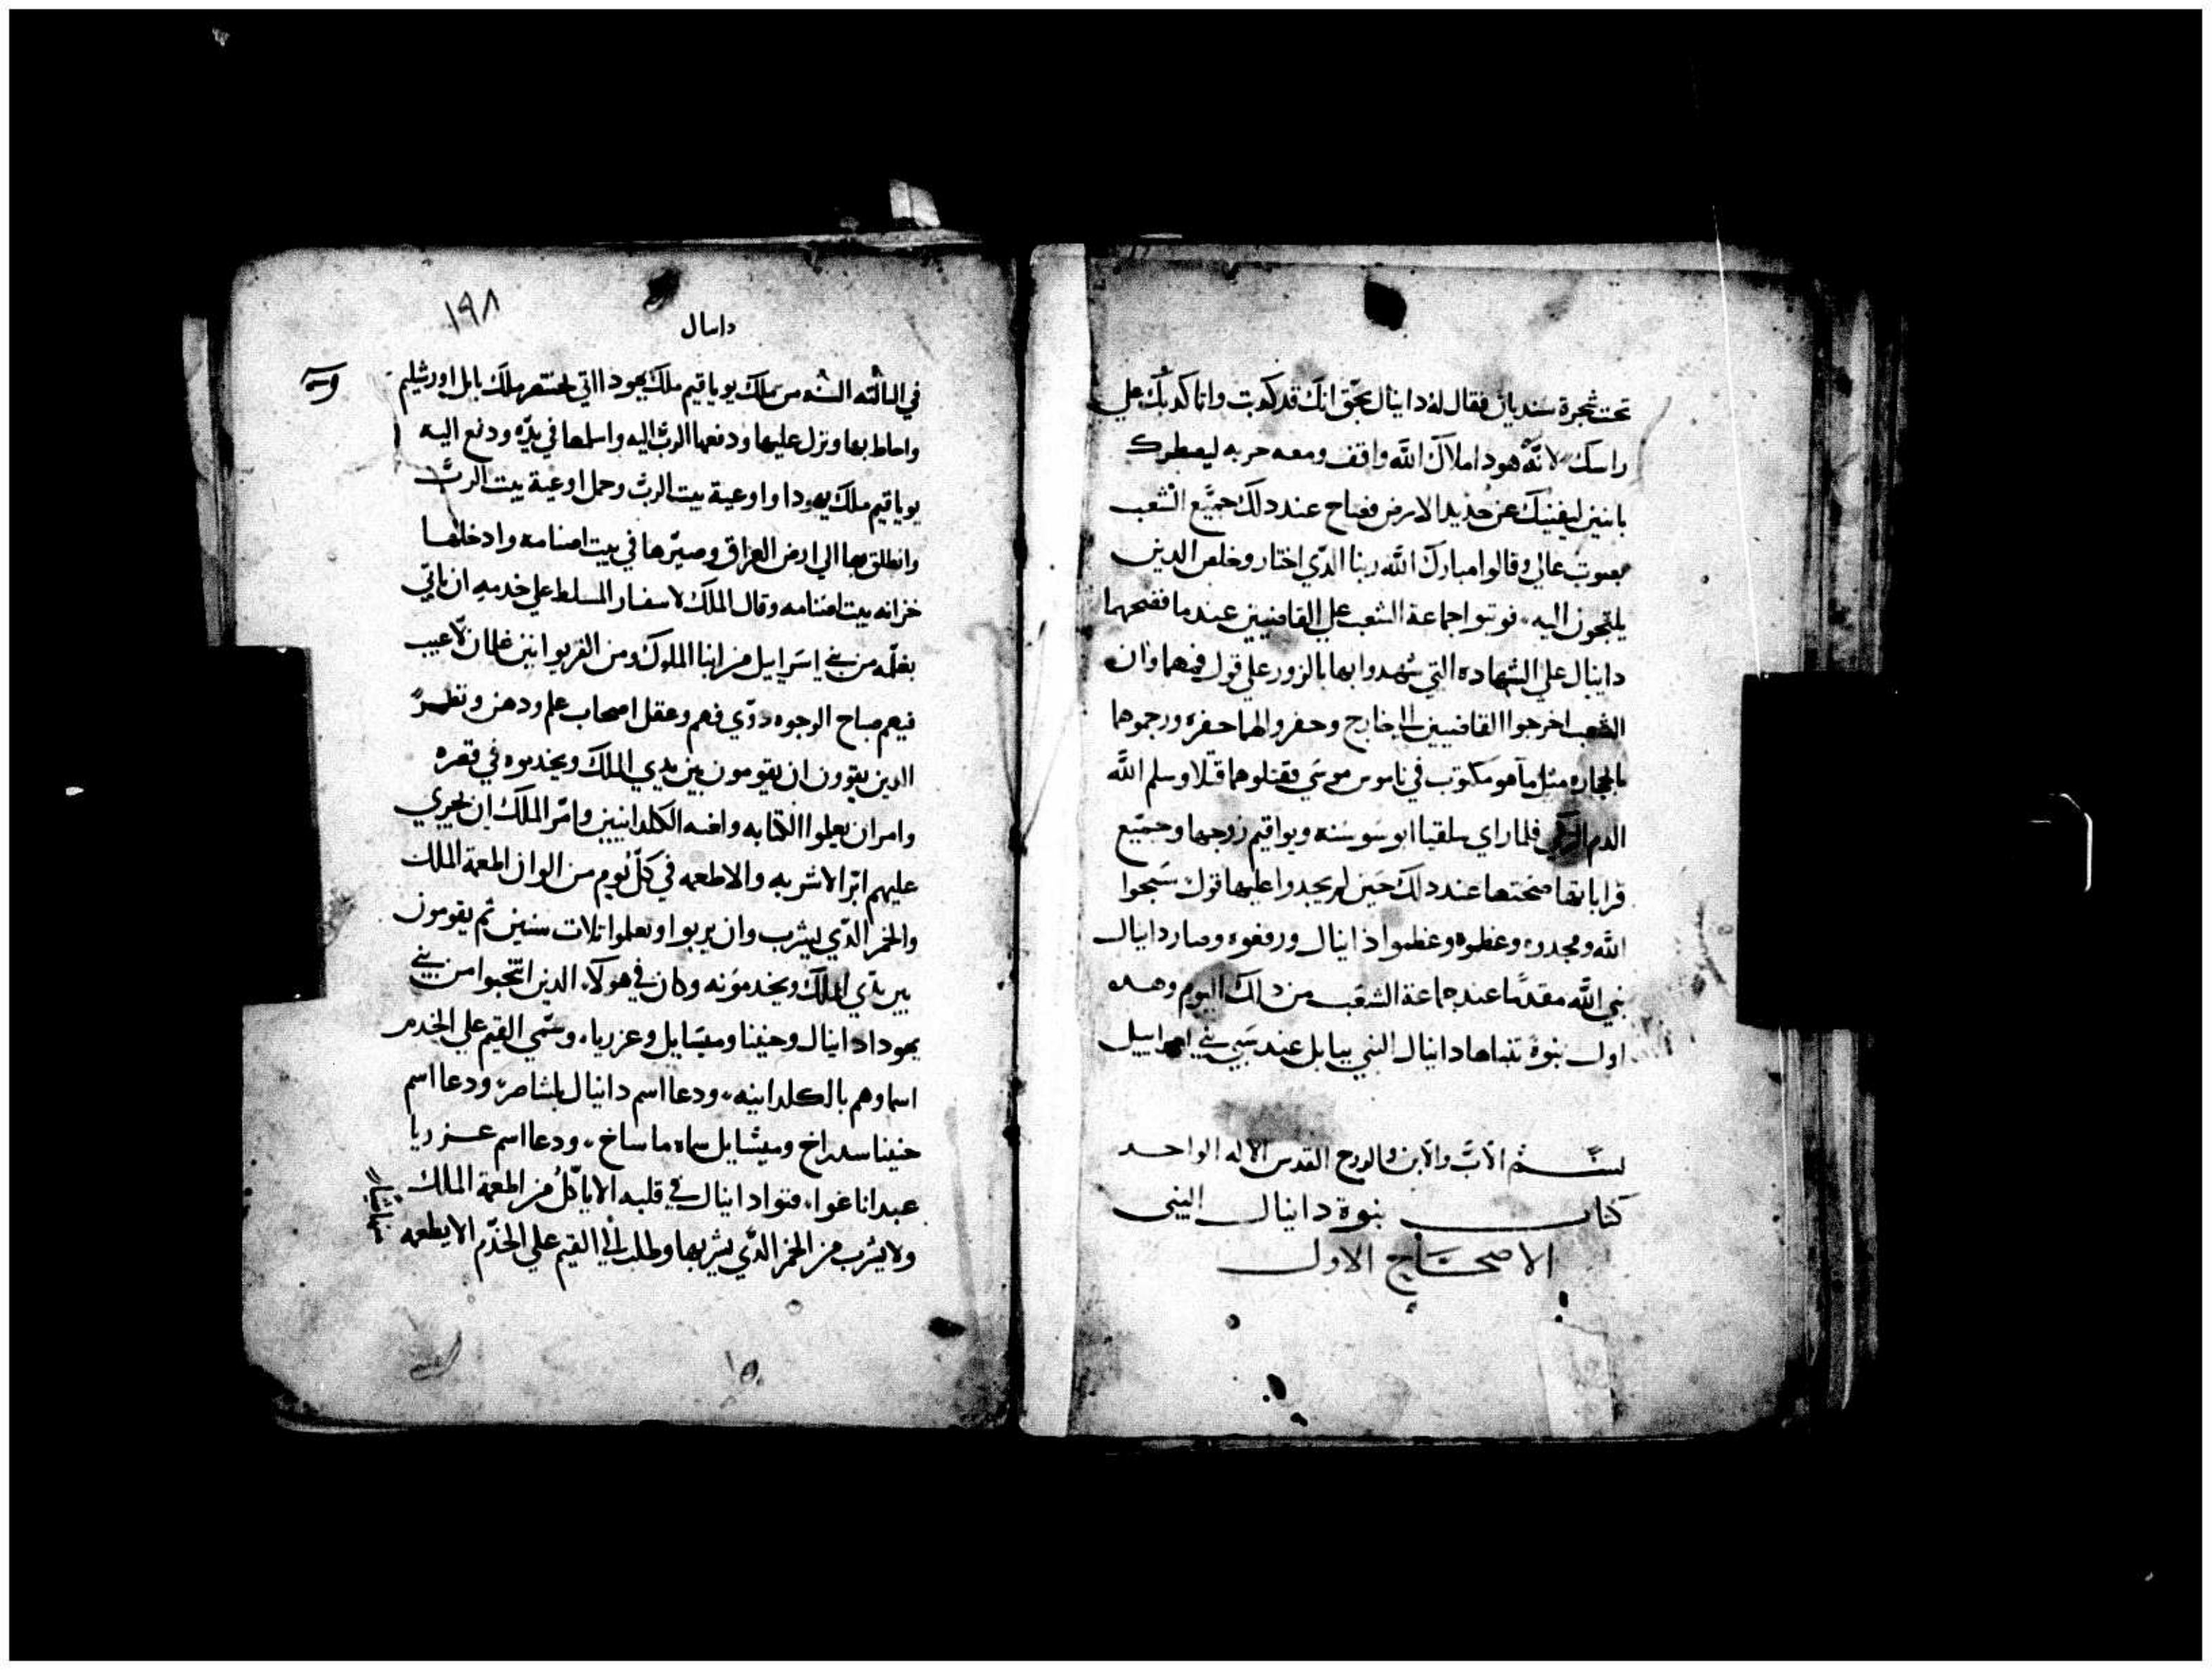 تحت شجرة سنديان فقال له دانيال بحق انك قد كدبت وانا كدبك علي
راسك لانه هودا ملاك الله واقف ومعه حربه ليسطرك
باتنين ليفنيك عن جديد الارض فصاح عند دلك جميع الشعب
بصوت عالي وقالوا مبارك الله ربنا الدي اختار وخلص الدين
يلتجون اليه فوتبوا جماعة الشعب علي القاضيين عندما فضحهما
دانيال علي الشهاده التي شهدوا بها بالزور علي قول فمهما وان
الشعب اخرجوا القاضيين الي خارج وحفروا لهما حفره ورجموهما
بالحجاره مثل ما هو مكتوب في ناموس موسي فقتلوهما قتلا وسلم الله
الدم الزكي فلما راي سلقيا ابو سوسنه ويواقيم زوجها وجميع
قراباتها صحتها عند دلك حين لم يجدوا عليها قول سبحوا
الله ومجدوه وعظموه وعظموا دانيال ورفعوه وصار دانيال
نبي الله مقدما عند جماعة الشعب من دلك اليوم وهده
اول نبوة تنباها دانيال النبي ببابل عند سبي بني اسراييل
بسم الاب والابن والروح القدس الاله الواحد
كتاب نبوة دانيال النبي
الاصحاح الاول
١٩٨
دانيال
في التالته السنه من ملك يوياقيم ملك يهودا اتي بختنصر ملك بابل اورشليم
واحاط بها ونزل عليها ودفعها الرب اليه واسلمها في يده ودفع اليه
يوياقيم ملك يهودا واوعية بيت الرب وحمل اوعية بيت الرب
وانطلق بها الي ارض العراق وصيرها في بيت اصنامه وادخلها
خزانه بيت اصنامه وقال الملك لاسفار المسلط علي خدمه ان ياتي
بغلمه من بني اسراييل من ابنا الملوك ومن الفربوانين غلمان لا عيب
فيهم صباح الوجوه دوي فهم وعقل اصحاب علم ودهن ونظر
الدين يقوون ان يقومون بين يدي الملك ويخدموه في قصره
وامر ان يعلموا الكتابه والسنه الكلدانيين وامر الملك ان يجري
عليهم ابر الاشربه والاطعمه في كل يوم من الوان اطعمة الملك
والخمر الدي يشرب وان يربوا ويعلموا تلات سنين تم يقومون
بين يدي الملك ويخدمونه وكان في هولاء الدين انتجبوا من بني
يهودا دانيال وحنينا وميشايل وعزريا، وسمي القيم علي الخدم
اسماوهم بالكلدانيه ودعا اسم دانيال بلشاصر ودعا اسم
حنينا سدراخ وميشايل سماه ماساخ ودعا اسم عزريا
عبداناغوا فنوا دانيال في قلبه الا ياكل من اطعمة الملك
ولا يشرب من الخمر الدي يشربها وطلب الي القيم علي الخدم الا يطعمه